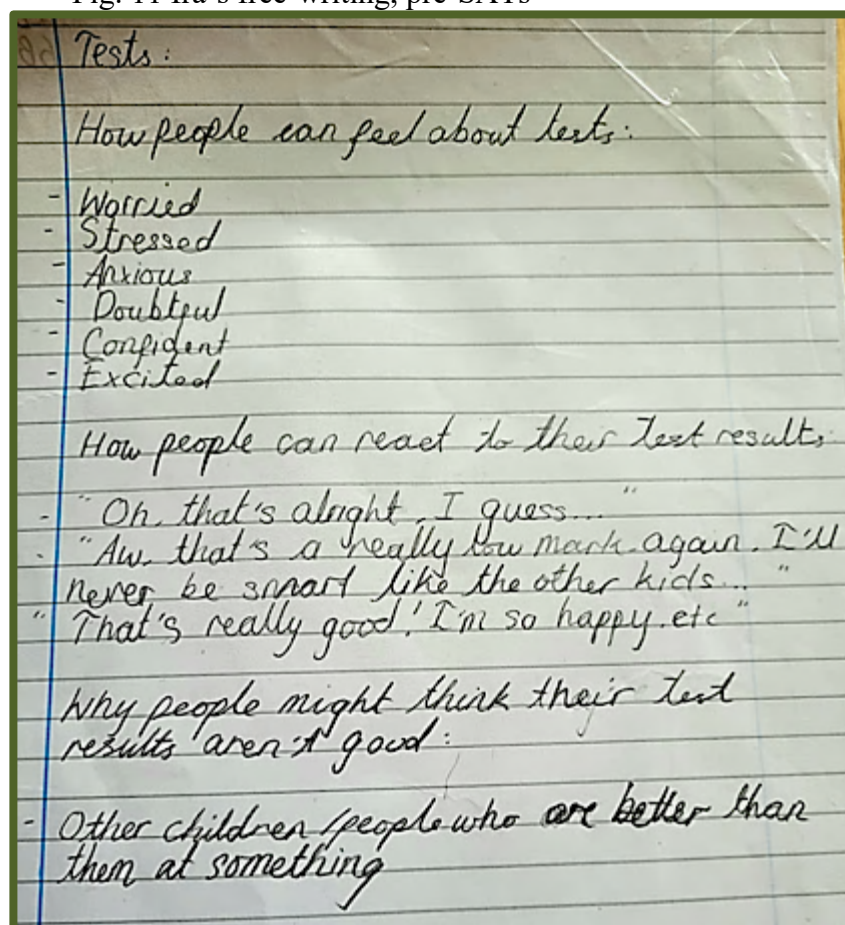 Fig. 11 Ira's free writing, pre-SATs
Tests:
How people can feel about tests:
- Worried
- Stressed
- Anxious
- Doubtful
- Confident
- Excited
How people can react to their test results:
- "Oh, that's alright, I guess..."
- "Aw, that's a really low mark again. I'll
never be smart like the other kids..."
" That's really good! I'm so happy.etc"
Why people might think their test
results aren't good:
- Other children/people who are better than
them at something